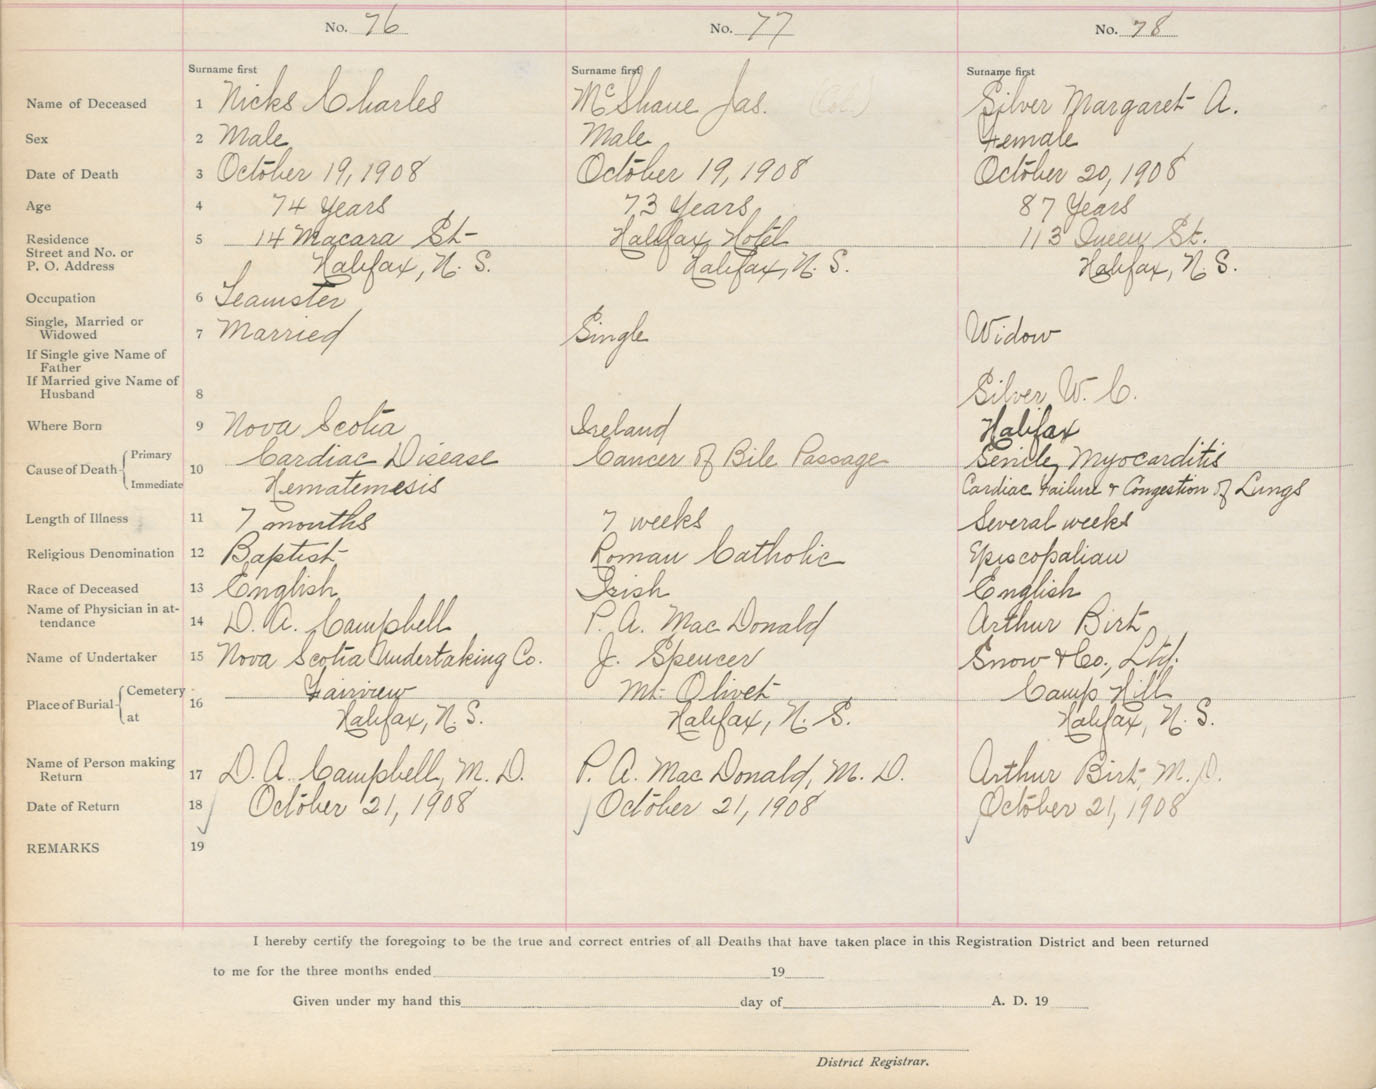 No. 76 No. 77 No. 78
Surname first Surname first Surname first
Name of Deceased 1 Nicks Charles McShane Jas. (Col.) Silver Margaret A.
Sex 2 Male Male Female
Date of Death 3 October 19, 1908 October 19, 1908 October 20, 1908
Age 4 74 Years 73 Years 87 Years
Residence 5 14 Macara St- Halifax Hotel 113 Queen St.
Street and No. or
P. O. Address Halifax, N. S. Halifax, N. S. Halifax, N S.
Occupation 6 Teamster
Single, Married or
Widowed 7 Married Single Widow
If Single give Name of
Father
If Married give Name of
Husband 8 Silver W. C.
Where Born 9 Nova Scotia Ireland Halifax
Cause of Death Primary Cardiac Disease Cancer of Bile Passage Senile Myocarditis
10 Immediate Hematemesis Cardiac Failure & Congestion of Lungs
Length of Illness 11 7 months 7 weeks Several weeks
Religious Denomination 12 Baptist Roman Catholic Episcopalian
Race of Deceased 13 English Irish English
Name of Physician in at-
tendance 14 D. A. Campbell P. A. MacDonald Arthur Birt
Name of Undertaker 15 Nova Scotia Undertaking Co. J. Spencer Snow & Co., Ltd.
Place of Burial Cemetery Fairview Mt. Olivet Camp Hill
16 at Halifax, N. S. Halifax, N. S. Halifax, N. S.
Name of Person making
Return 17 D. A. Campbell, M. D. P. A. MacDonald, M. D. Arthur Birt, M. D.
Date of Return 18 October 21, 1908 October 21, 1908 October 21, 1908
REMARKS 19
I hereby certify the foregoing to be the true and correct entries of all Deaths that have taken place in this Registration District and been returned
to me for the three months ended 19
Given under my hand this day of A. D. 19
District Registrar.